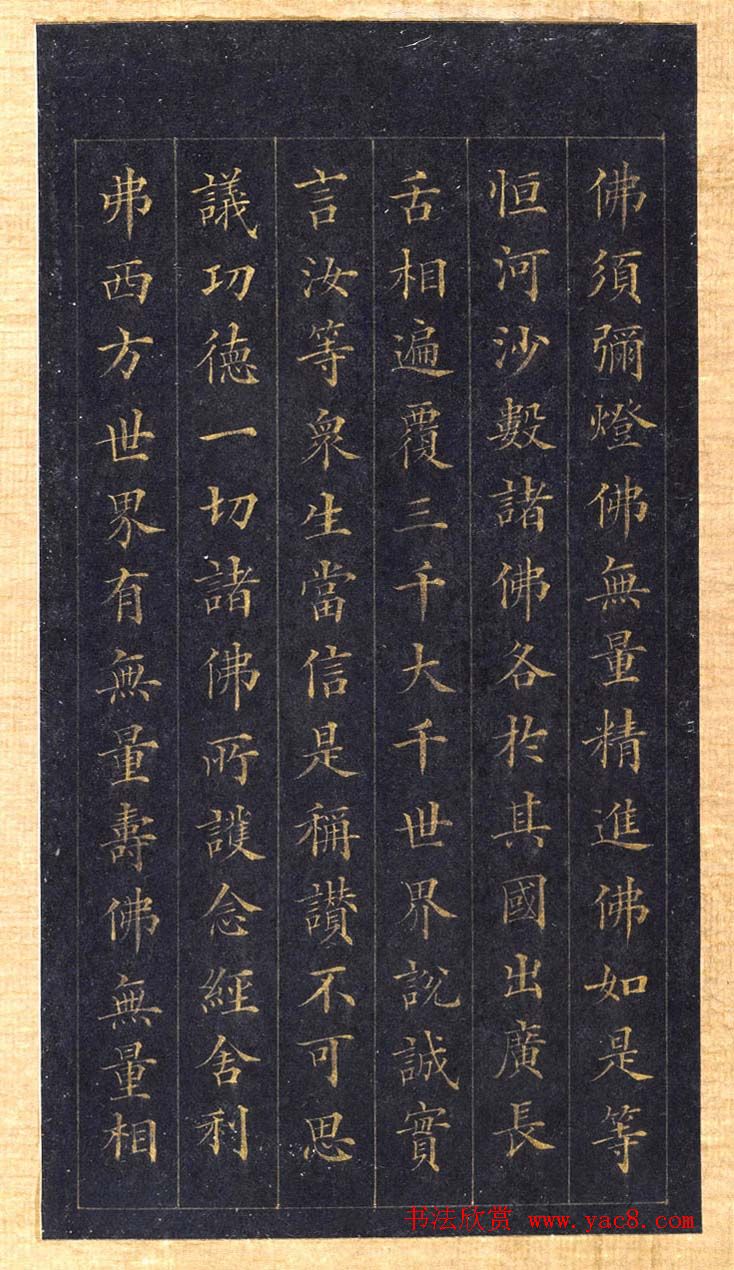 佛須彌燈佛無量精進佛如是等
恒河沙數諸佛各於其國出廣長
舌相遍覆三千大千世界說誠實
言汝等衆生當信是稱讃不可思
議功德一切諸佛所護念經舍利
弗西方世界有無量壽佛無量相
书法欣赏 www.yac8.com